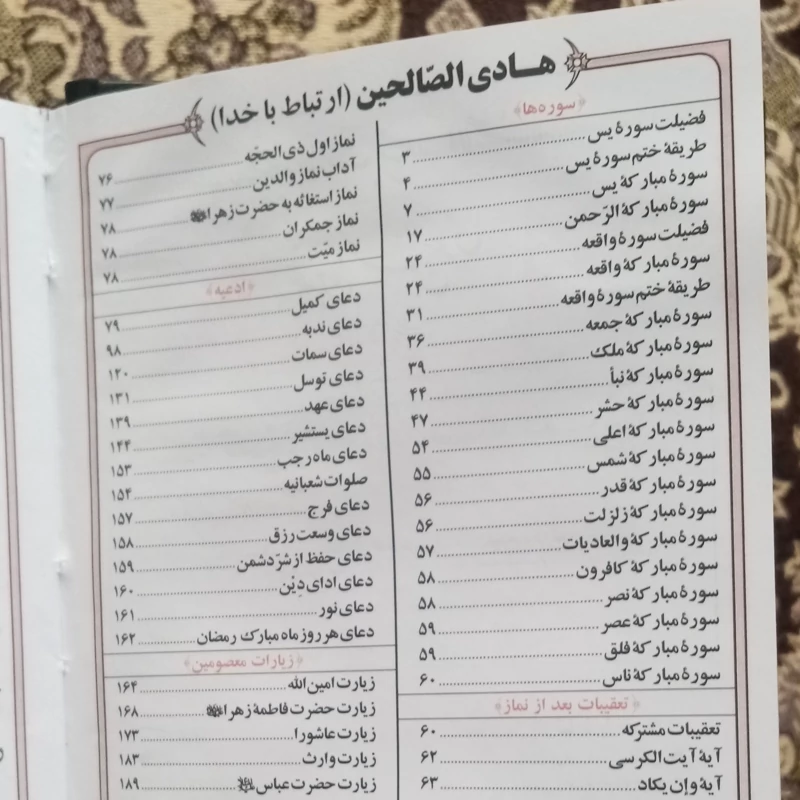 هادی الصّالحین (ارتباط با خدا)
سوره‌ها
فضیلت سورهٔ یس ۳
طریقهٔ ختم سورهٔ یس ۴
سورهٔ مبارکهٔ یس ۷
سورهٔ مبارکهٔ الرّحمن ۱۷
فضیلت سورهٔ واقعه ۲۴
سورهٔ مبارکهٔ واقعه ۲۴
طریقهٔ ختم سورهٔ واقعه ۳۱
سورهٔ مبارکهٔ جمعه ۳۶
سورهٔ مبارکهٔ ملک ۳۹
سورهٔ مبارکهٔ نبأ ۴۴
سورهٔ مبارکهٔ حشر ۴۷
سورهٔ مبارکهٔ اعلی ۵۴
سورهٔ مبارکهٔ شمس ۵۵
سورهٔ مبارکهٔ قدر ۵۶
سورهٔ مبارکهٔ زلزلت ۵۶
سورهٔ مبارکهٔ والعادیات ۵۷
سورهٔ مبارکهٔ کافرون ۵۸
سورهٔ مبارکهٔ نصر ۵۸
سورهٔ مبارکهٔ عصر ۵۹
سورهٔ مبارکهٔ فلق ۵۹
سورهٔ مبارکهٔ ناس ۶۰
تعقیبات بعد از نماز
تعقیبات مشترکه ۶۰
آیهٔ آیت الکرسی ۶۲
آیهٔ وإن یکاد ۶۳
نماز اول ذی الحجّه ۷۶
آداب نماز والدین ۷۷
نماز استغاثه به حضرت زهرا ۷۸
نماز جمکران ۷۸
نماز میّت ۷۸
ادعیه
دعای کمیل ۷۹
دعای ندبه ۹۸
دعای سمات ۱۲۰
دعای توسل ۱۳۱
دعای عهد ۱۳۹
دعای یستشیر ۱۴۴
دعای ماه رجب ۱۵۳
صلوات شعبانیه ۱۵۴
دعای فرج ۱۵۷
دعای وسعت رزق ۱۵۸
دعای حفظ از شرّ دشمن ۱۵۹
دعای ادای دِیْن ۱۶۰
دعای نور ۱۶۱
دعای هر روز ماه مبارک رمضان ۱۶۲
زیارات معصومین
زیارت امین الله ۱۶۴
زیارت حضرت فاطمهٔ زهرا ۱۶۸
زیارت عاشورا ۱۷۳
زیارت وارث ۱۸۳
زیارت حضرت عباس ۱۸۹